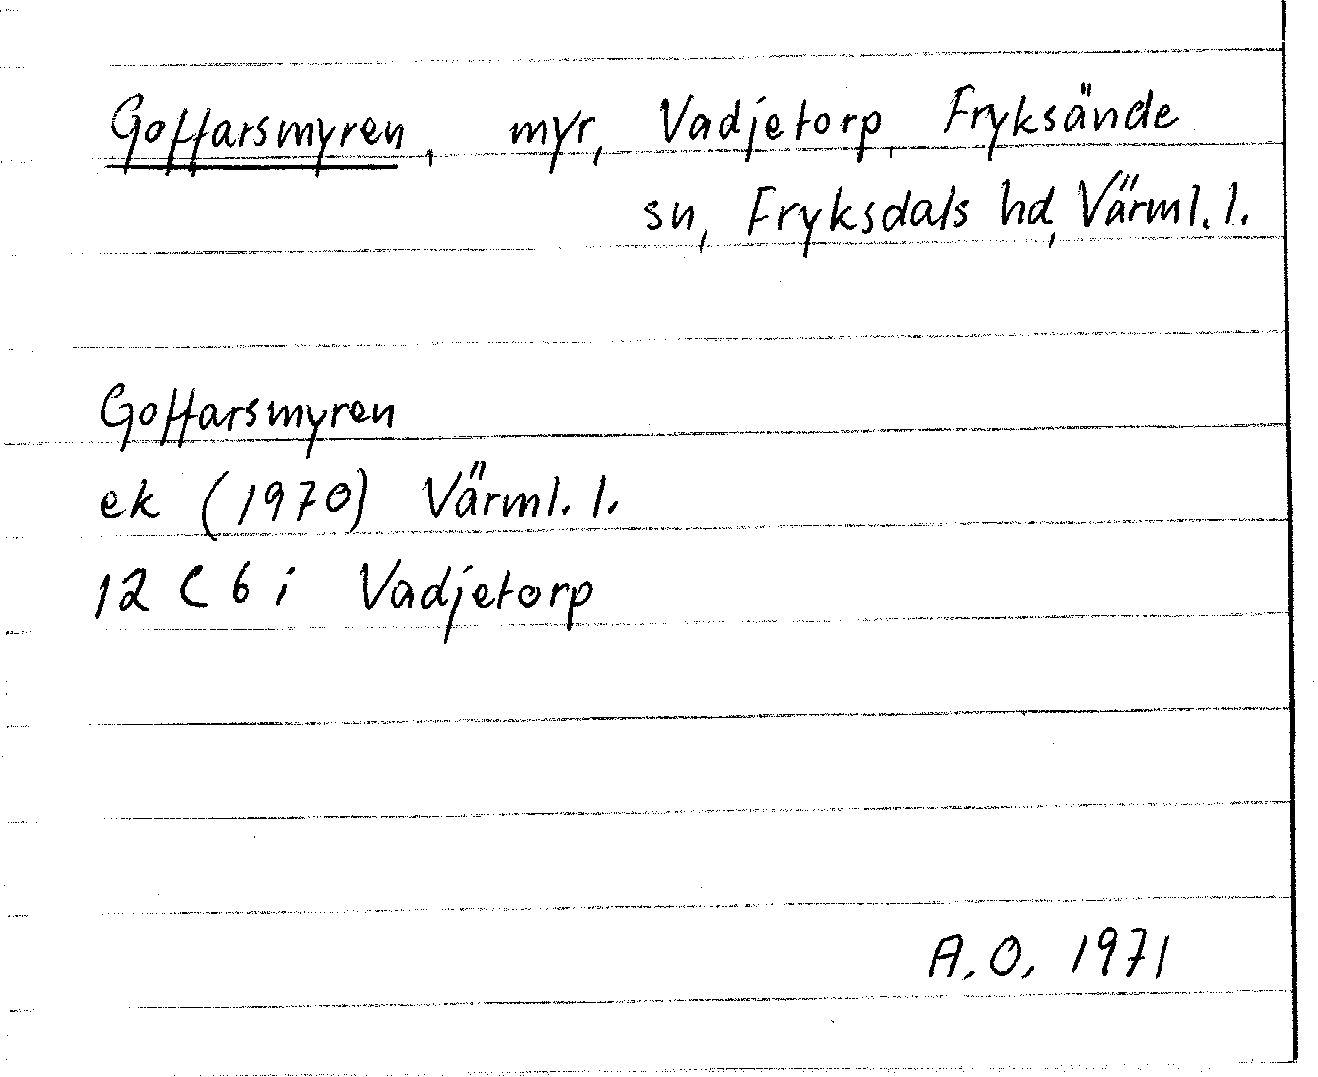 Goffarsmyren, myr, Vadjetorp, Fryksände
sn, Fryksdals hd, Värml. l.
Goffarsmyren
ek (1970) Värml. l.
12 C 6 i Vadjetorp
A.O. 1971